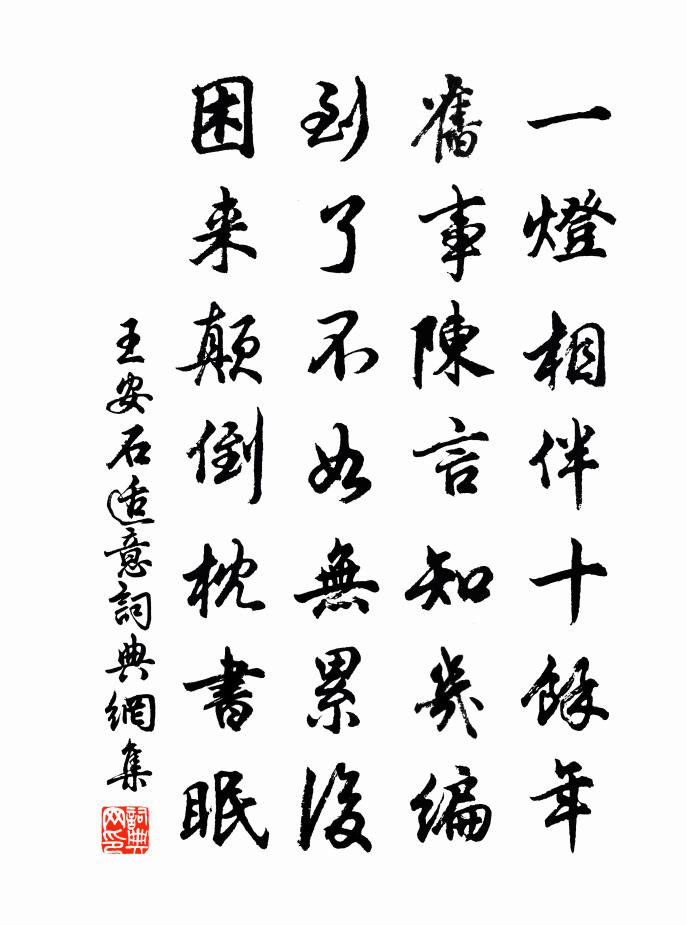 一燈相伴十餘年
舊事陳言知幾編
到了不如無累後
困来顛倒枕書眠
王安石适意詞典網集
詞典網印